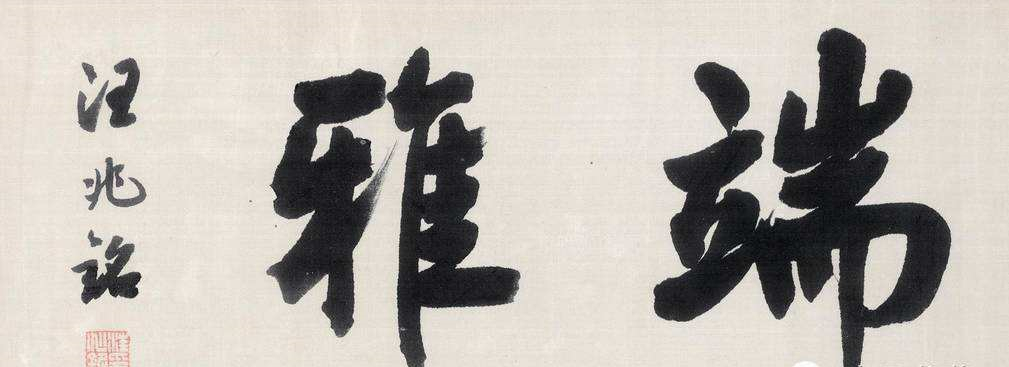 端雅
汪兆銘